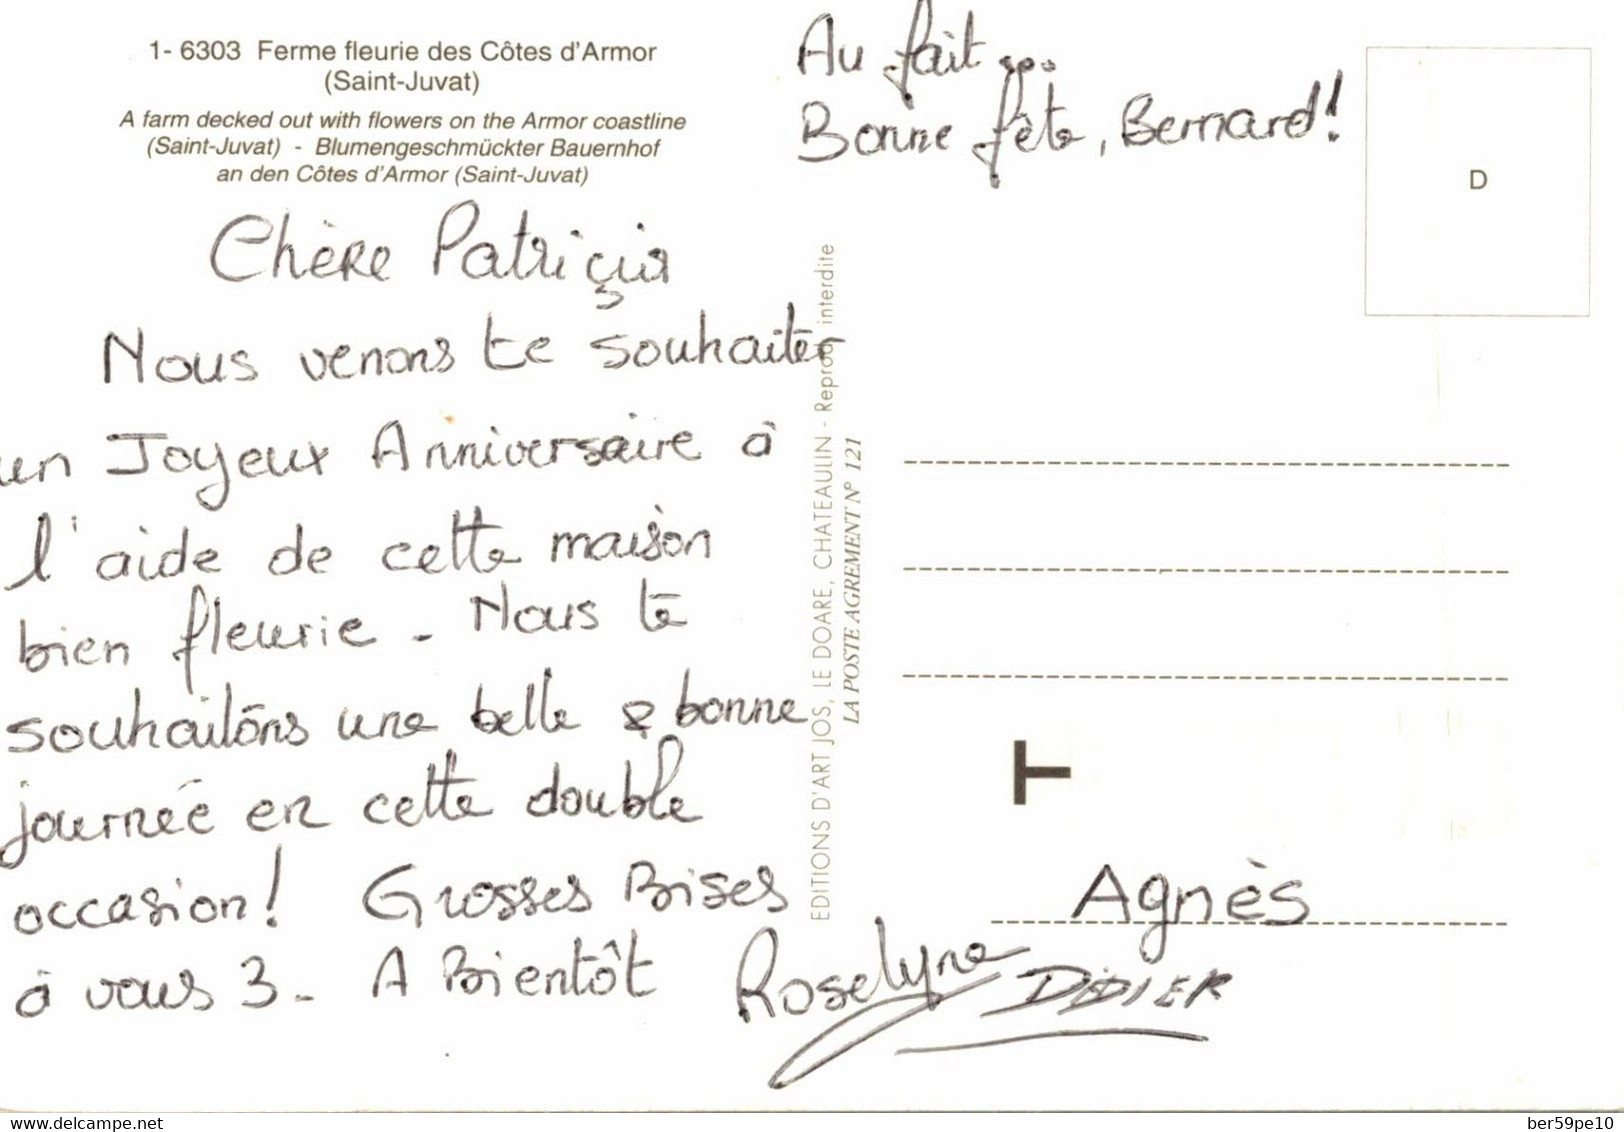 1- 6303 Ferme fleurie des Côtes d'Armor
(Saint-Juvat)
A farm decked out with flowers on the Armor coastline
(Saint-Juvat) - Blumengeschmückter Bauernhof
an den Côtes d'Armor (Saint-Juvat)
Au fait...
Bonne fête, Bernard!
D
Chère Patriçia
Nous venons te souhaiter
un Joyeux Anniversaire à
l'aide de cette maison
bien fleurie - Nous te
souhaitons une belle & bonne
journée en cette double
occasion! Grosses Bises
à vous 3 - A Bientôt
Roselyne
DIDIER
Agnès
T
EDITIONS D'ART JOS, LE DOARE, CHATEAULIN - Reprod interdite
LA POSTE AGREMENT N° 121
delcampe.net
ber59pe10